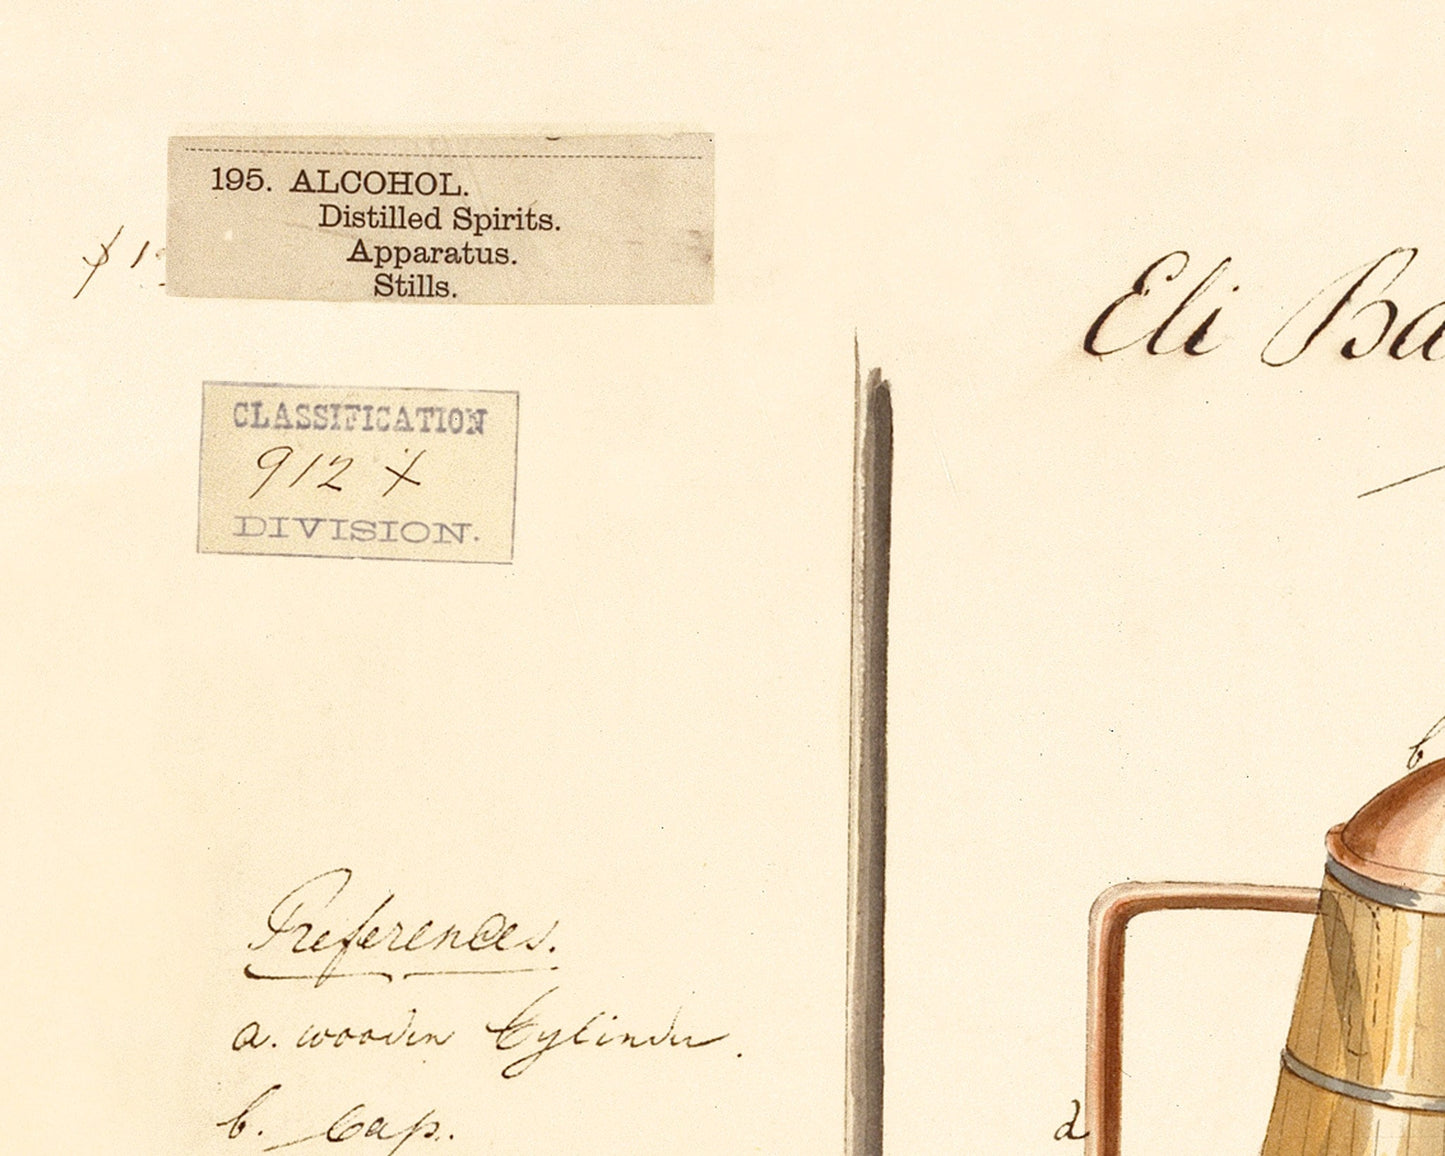 195. ALCOHOL.
Distilled Spirits.
Apparatus.
Stills.
Eli
CLASSIFICATION
912 X
DIVISION.
b
References.
a. wooden Cylinder.
b. Cap.
d